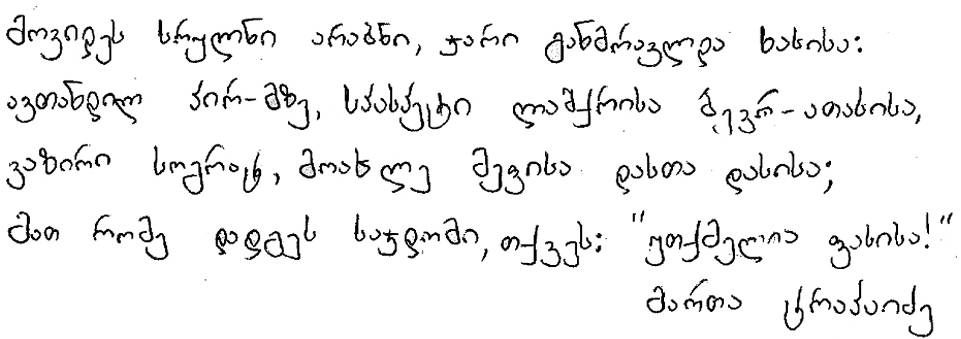 მოვიდეს სრულნი არაბნი, ჯარი განმრავლდა ხასისა:
ავთანდილ პირ-მზე, სპასპეტი ლაშქრისა ბევრ-ათასისა,
ვაზირი სოგრატ, მოახლე მეფისა დასთა დასისა;
მათ რომე დადგეს საჯდომი, თქვეს: "უთქმელია ფასისა!"
მართა ტრაპაიძე